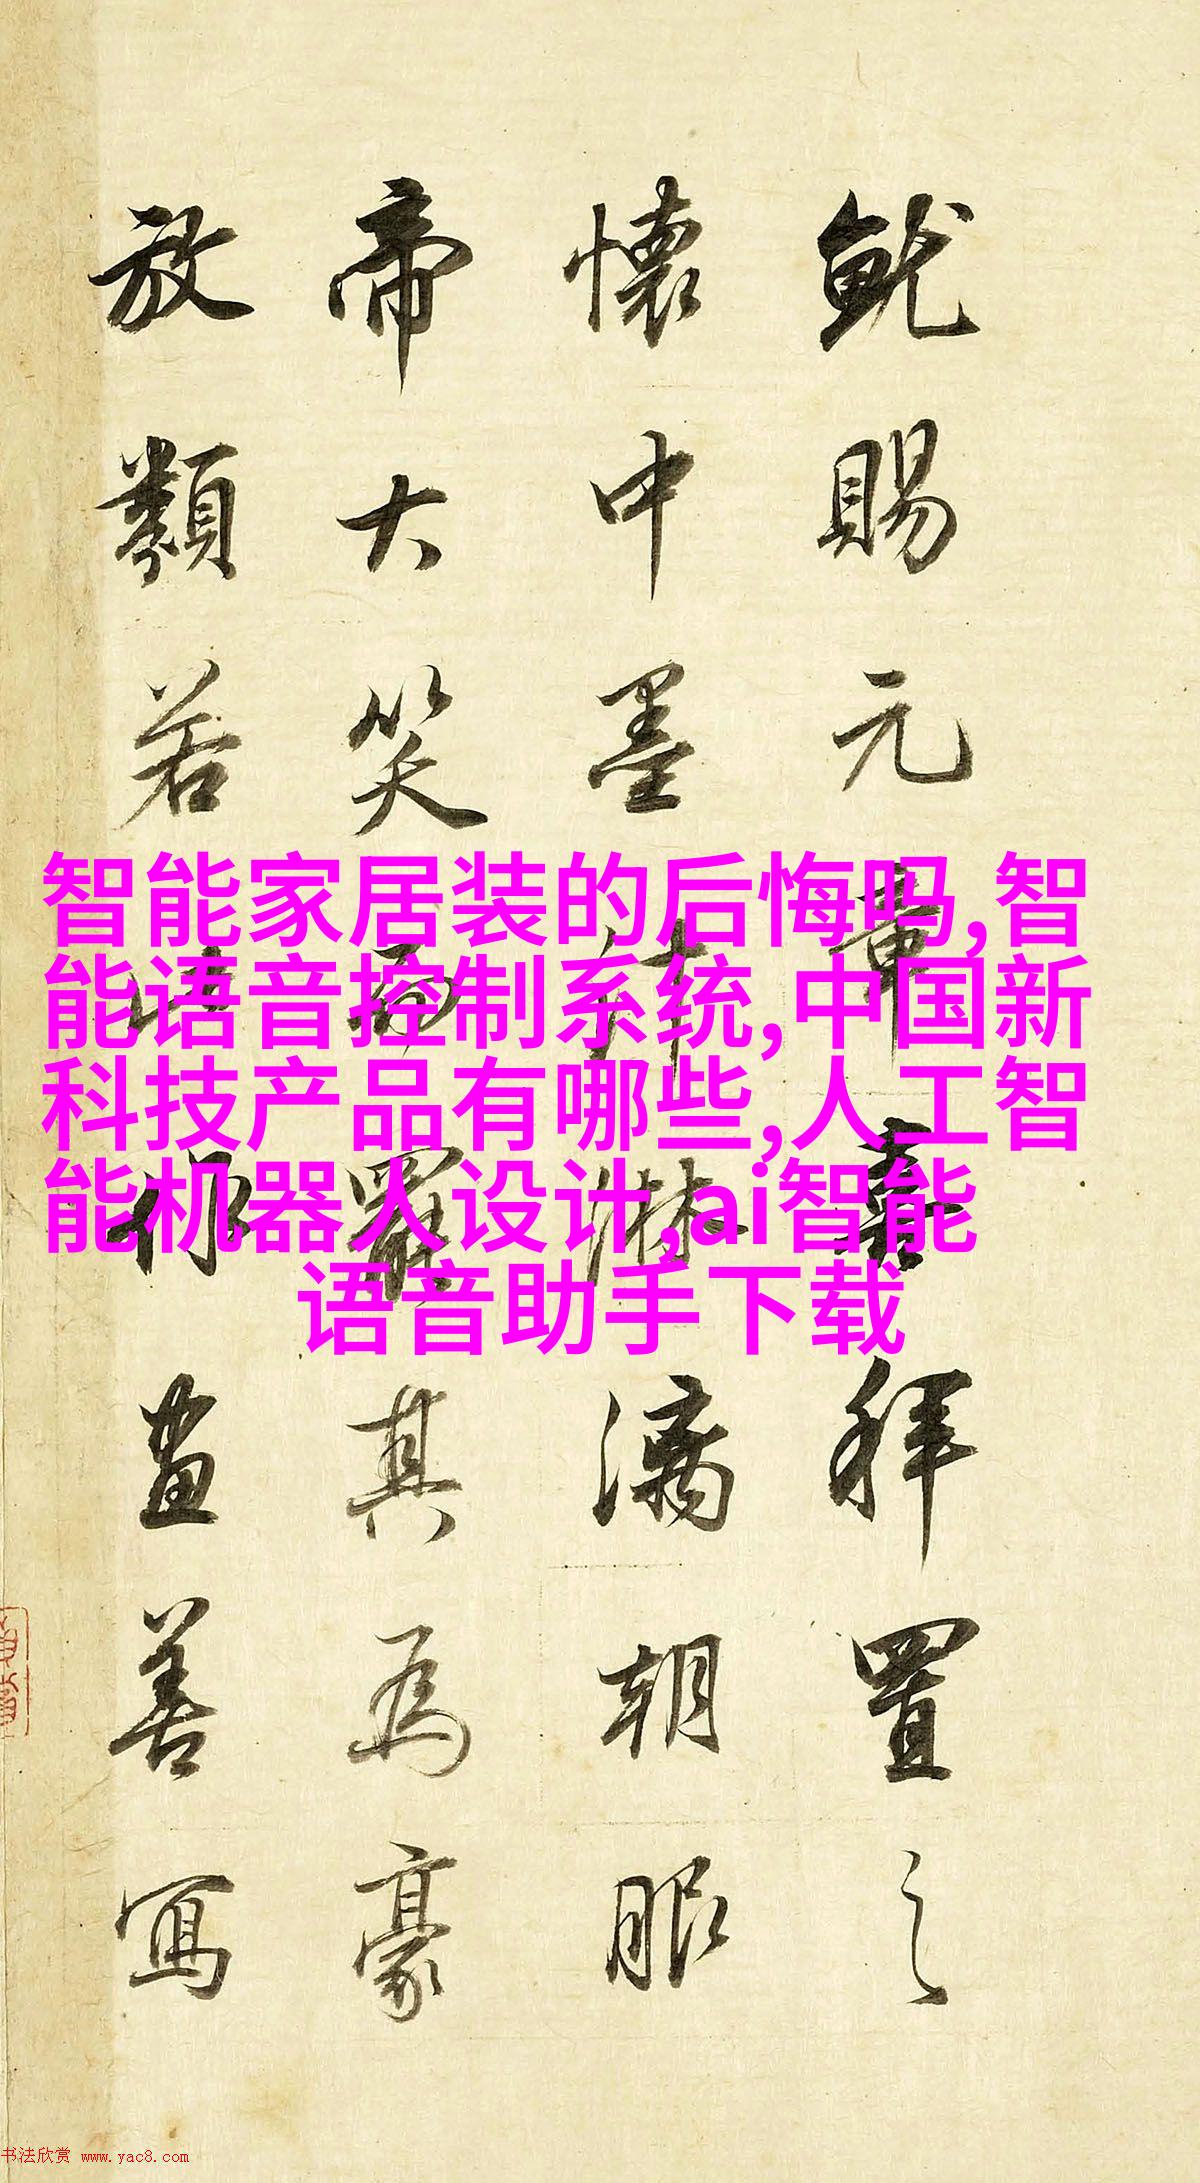 就賜元章喜拜置之
懷中墨汁淋漓朝服
帝大笑而罷其為豪
放類若此畫善寫
智能家居装的后悔吗,智
能语音控制系统,中国新
科技产品有哪些,人工智
能机器人设计,ai智能
语音助手下载
书法欣赏 www.yac8.com